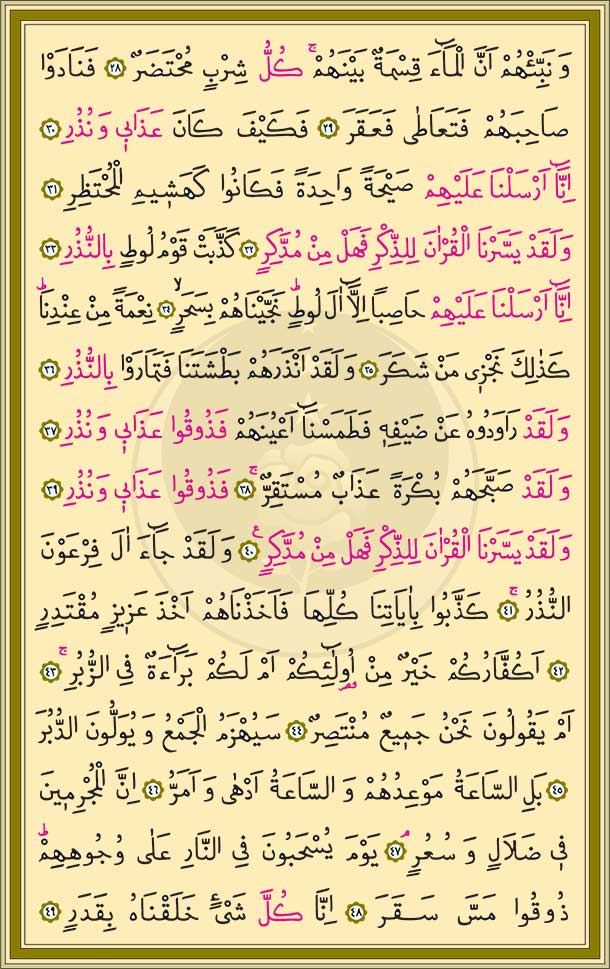 وَنَبِّئْهُمْ اَنَّ الْمَٓاءَ قِسْمَةٌ بَيْنَهُمْۚ كُلُّ شِرْبٍ مُحْتَضَرٌ ﴿٢٨﴾ فَنَادَوْا
صَاحِبَهُمْ فَتَعَاطٰى فَعَقَرَ ﴿٢٩﴾ فَكَيْفَ كَانَ عَذَاب۪ي وَنُذُرِ ﴿٣٠﴾
اِنَّٓا اَرْسَلْنَا عَلَيْهِمْ صَيْحَةً وَاحِدَةً فَكَانُوا كَهَش۪يمِ الْمُحْتَظِرِ ﴿٣١﴾
وَلَقَدْ يَسَّرْنَا الْقُرْاٰنَ لِلذِّكْرِ فَهَلْ مِنْ مُدَّكِرٍ ﴿٣٢﴾ كَذَّبَتْ قَوْمُ لُوطٍ بِالنُّذُرِ ﴿٣٣﴾
اِنَّٓا اَرْسَلْنَا عَلَيْهِمْ حَاصِبًا اِلَّٓا اٰلَ لُوطٍۜ نَجَّيْنَاهُمْ بِسَحَرٍۙ ﴿٣٤﴾ نِعْمَةً مِنْ عِنْدِنَاۜ
كَذٰلِكَ نَجْز۪ي مَنْ شَكَرَ ﴿٣٥﴾ وَلَقَدْ اَنْذَرَهُمْ بَطْشَتَنَا فَتَمَارَوْا بِالنُّذُرِ ﴿٣٦﴾
وَلَقَدْ رَاوَدُوهُ عَنْ ضَيْفِه۪ فَطَمَسْنَٓا اَعْيُنَهُمْ فَذُوقُوا عَذَاب۪ي وَنُذُرِ ﴿٣٧﴾
وَلَقَدْ صَبَّحَهُمْ بُكْرَةً عَذَابٌ مُسْتَقِرٌّۚ ﴿٣٨﴾ فَذُوقُوا عَذَاب۪ي وَنُذُرِ ﴿٣٩﴾
وَلَقَدْ يَسَّرْنَا الْقُرْاٰنَ لِلذِّكْرِ فَهَلْ مِنْ مُدَّكِرٍ۟ ﴿٤٠﴾ وَلَقَدْ جَٓاءَ اٰلَ فِرْعَوْنَ
النُّذُرُۚ ﴿٤١﴾ كَذَّبُوا بِاٰيَاتِنَا كُلِّهَا فَاَخَذْنَاهُمْ اَخْذَ عَز۪يزٍ مُقْتَدِرٍ
﴿٤٢﴾ اَكُفَّارُكُمْ خَيْرٌ مِنْ اُو۬لٰٓئِكُمْ اَمْ لَكُمْ بَرَٓاءَةٌ فِي الزُّبُرِۚ ﴿٤٣﴾
اَمْ يَقُولُونَ نَحْنُ جَم۪يعٌ مُنْتَصِرٌ ﴿٤٤﴾ سَيُهْزَمُ الْجَمْعُ وَيُوَلُّونَ الدُّبُرَ
﴿٤٥﴾ بَلِ السَّاعَةُ مَوْعِدُهُمْ وَالسَّاعَةُ اَدْهٰى وَاَمَرُّ ﴿٤٦﴾ اِنَّ الْمُجْرِم۪ينَ
ف۪ي ضَلَالٍ وَسُعُرٍۢ ﴿٤٧﴾ يَوْمَ يُسْحَبُونَ فِي النَّارِ عَلٰى وُجُوهِهِمْۜ
ذُوقُوا مَسَّ سَقَرَ ﴿٤٨﴾ اِنَّا كُلَّ شَيْءٍ خَلَقْنَاهُ بِقَدَرٍ ﴿٤٩﴾